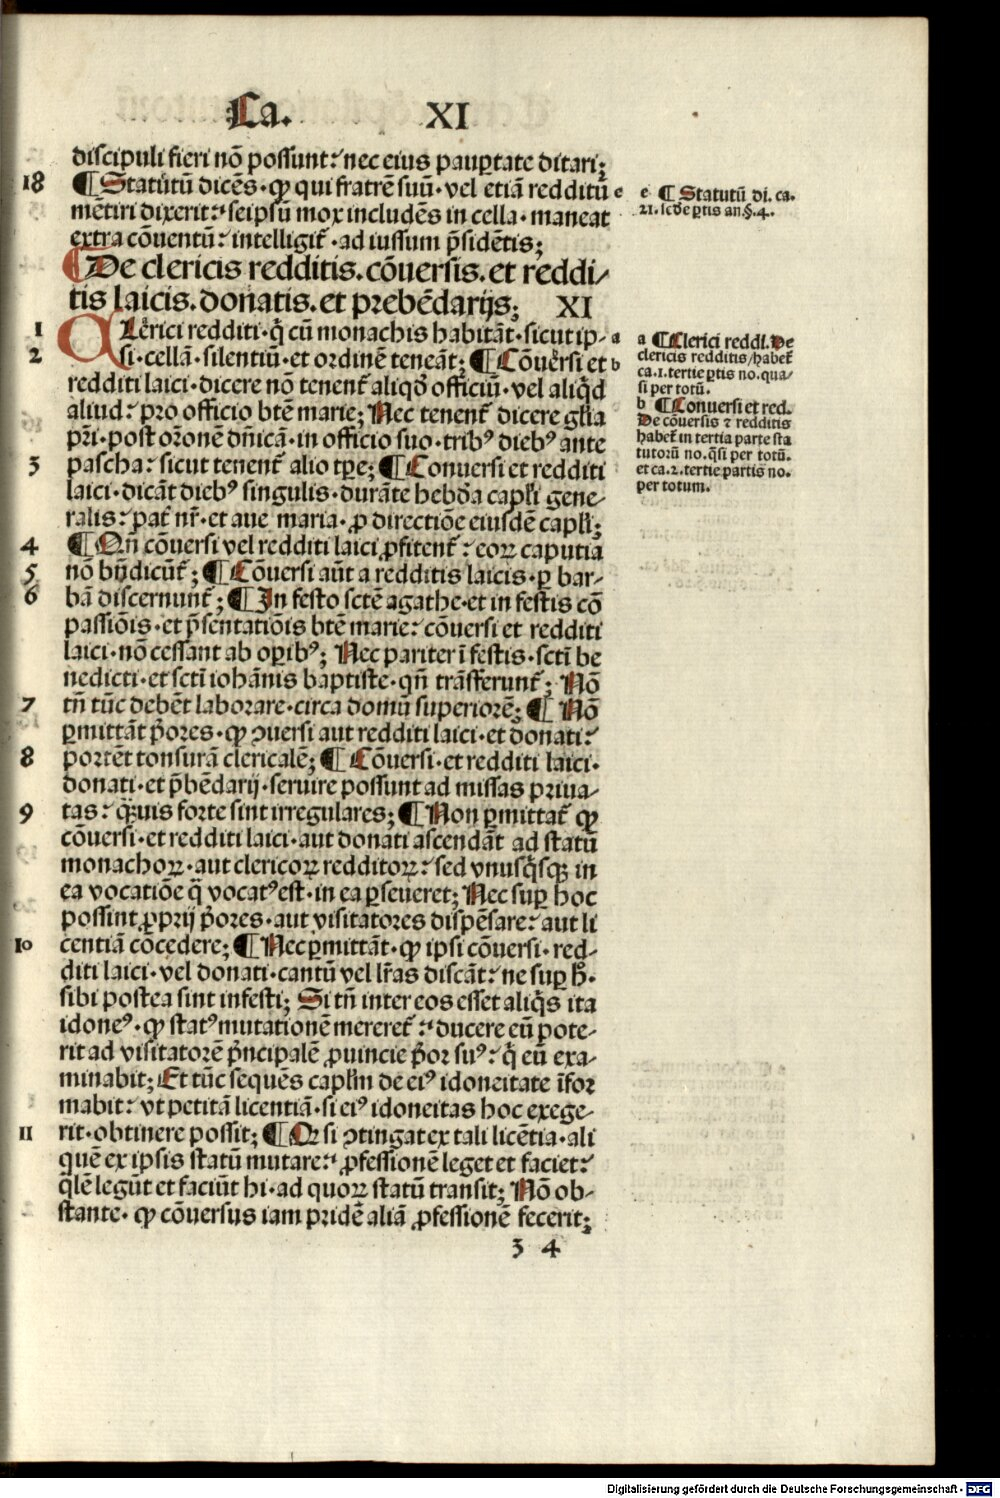 Ca. XI
discipuli fieri nō possunt: nec eius paup̱tate ditari;
18 ¶ Statutū dicēs · ꝙ qui fratrē suū · vel etiā redditū e
mētiri dixerit: seipsū mox includēs in cella · maneat
extra cōuentū: intelligit̄ · ad iussum p̄sidētis;
¶ De clericis redditis. cōuersis. et reddi⸗
tis laicis. donatis. et prebēdarijs; XI
1 Clerici redditi · q̄ cū monachis habitāt · sicut ip⸗ a
2 si · cellā · silentiū · et ordinē teneāt; ¶ Cōuersi et b
redditi laici · dicere nō tenent̄ aliqđ officiū · vel aliq̄d
aliud: pro officio btē marie; Nec tenent̄ dicere gl̄ia
pr̄i · post or̄onē dn̄icā · in officio suo · tribꝰ diebꝰ ante
3 pascha: sicut tenent̄ alio tp̄e; ¶ Conuersi et redditi
laici · dicāt diebꝰ singulis · durāte hebđa capl̄i gene⸗
ralis: pat̄ nr̄ · et aue maria · ꝓ directiōe eiusdē capl̄i;
4 ¶ Qn̄ cōuersi vel redditi laici ꝓfitent̄: eoꝝ caputia
5 nō bn̄dicūt̄; ¶ Cōuersi aūt a redditis laicis · ꝑ bar⸗
6 bā discernunt̄; ¶ In festo sctē agathe · et in festis cō
passiōis · et p̄sentatiōis btē marie: cōuersi et redditi
laici · nō cessant ab oꝑibꝰ; Nec pariter ī festis · scti be
nedicti · et scti iohānis baptiste · qn̄ trāsferunt̄; Nō
7 tn̄ tūc debēt laborare · circa domū superiorē; ¶ Nō
ꝑmittāt p̄ores · ꝙ ꝯuersi aut redditi laici · et donati:
8 portēt tonsurā clericalē; ¶ Cōuersi · et redditi laici ·
donati · et p̄bēdarij · seruire possunt ad missas priua⸗
9 tas: q̄uis forte sint irregulares; ¶ Non ꝑmittat̄ ꝙ
cōuersi · et redditi laici · aut donati ascendāt ad statū
monachoꝝ · aut clericoꝝ redditoꝝ: sed vnusq̄sqꝫ in
ea vocatiōe q̄ vocatꝰ est · in ea ꝑseueret; Nec suꝑ hoc
possint ꝓprij p̄ores · aut visitatores dispēsare: aut li
10 centiā cōcedere; ¶ Nec ꝑmittāt · ꝙ ipsi cōuersi · red⸗
diti laici · vel donati · cantū vel lr̄as discāt: ne suꝑ h̄ ·
sibi postea sint infesti; Si tn̄ inter eos esset aliq̄s ita
idoneꝰ · ꝙ statꝰ mutationē mereret̄: ducere eū pote⸗
rit ad visitatorē p̄ncipalē ꝓuincie p̄or suꝰ: q̄ eū exa⸗
minabit; Et tūc sequēs capl̄m de eiꝰ idoneitate īfor
mabit: vt petitā licentiā · si eiꝰ idoneitas hoc exege⸗
11 rit · obtinere possit; ¶ Qꝛ si ꝯtingat ex tali licētia · ali
quē ex ipsis statū mutare: ꝓfessionē leget et faciet:
q̄lē legūt et faciūt hi · ad quoꝝ statū transit; Nō ob⸗
stante · ꝙ cōuersus iam pridē aliā ꝓfessionē fecerit;
3 4
e ¶ Statutū di. ca.
21. scđe ꝑtis an. §. 4.
a ¶ Clerici reddi. De
clericis redditis / habet̄
ca. 1. tertie ꝑtis no. qua⸗
si per totū.
b ¶ Conuersi et red.
De cōuersis ⁊ redditis
habet̄ in tertia parte sta
tutorū no. q̄si per totū.
et ca. 2. tertie partis no.
per totum.
Digitalisierung gefördert durch die Deutsche Forschungsgemeinschaft - DFG